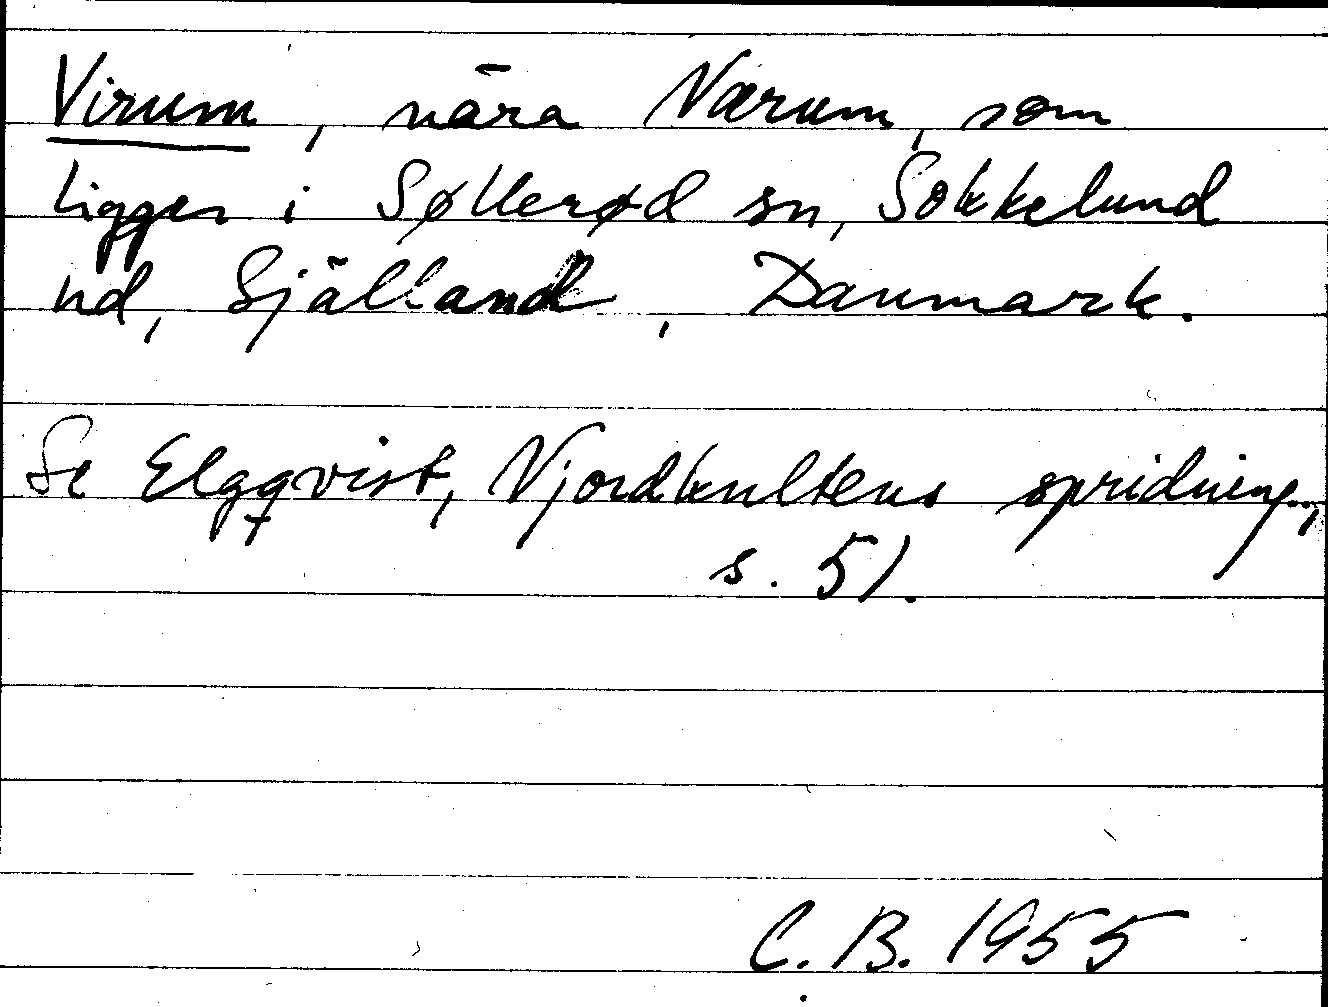 Virum, nära Nærum, som
ligger i Søllerød sn, Sokkelund
hd, Själland, Danmark.
Se Elgqvist, Njordkultens spridning,
s. 51.
C.B. 1955